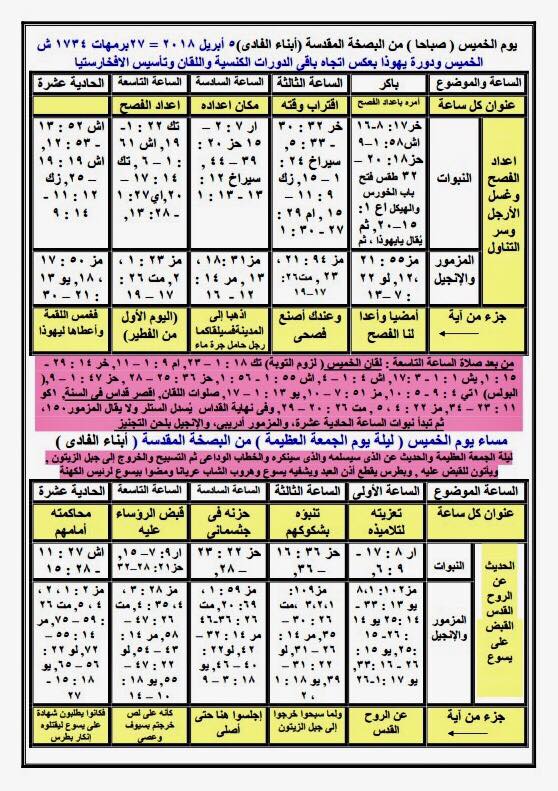 يوم الخميس ( صباحا ) من البصخة المقدسة (أبناء الفادى) ٥ أبريل ٢٠١٨ = ٢٧برمهات ١٧٣٤ ش
الخميس ودورة يهوذا بعكس اتجاه باقى الدورات الكنسية واللقان وتأسيس الافخارستيا
الساعة والموضوع
باكر
الساعة الثالثة
الساعة السادسة
الساعة التاسعة
الحادية عشرة
عنوان كل ساعة
أمره باعداد الفصح
اقتراب وقته
مكان اعداده
اعداد الفصح
اعداد
الفصح
وغسل
الأرجل
وسر
التناول
النبوات
خر١٧: ٨-١٦
اش٥٨: ١-٩
حز١٨: ٢٠ –
٣٢ طقس فتح
باب الخورس
والهيكل اع ١:
١٥-٢٠, ثم
يُقال يايهوذا , ثم
خر ٣٢ : ٣٠
– ٣٣ : ٥,
سيراخ ٢٤ :
١ – ١٥, زك
٩ : ١١ –
١٥ , ام ٢٩ :
٢٧ – ٣٠ : ١
ار ٧ : ٢ –
١٥ حز ٢٠ :
٣٩ – ٤٤ ,
سيراخ ١٢ :
١٣ – ١٣ : ١
تك ٢٢ : ١-
١٩, اش ٦١
: ١ – ٦, تك
١٤ : ١٧ –
٢٠, اي ٢٧: ١
- ٢٨: ١٣,
اش ٥٢ : ١٣
– ٥٣ : ١٢,
اش ١٩ : ١٩
– ٢٥, زك
١٢ : ١١ –
١٤ : ٩
المزمور
والإنجيل
مز٥٥ : ٢١
,١٢, لو ٢٢
: ٧ – ١٣
مز ٩٤ : ٢١ ,
٢٣ , مت٢٦:
١٧-١٩
مز٣١ : ١٨,
١٣, مر ١٤ :
١٢ – ١٦
مز ٢٣ : ١ ,
٢, مت ٢٦ :
١٧ – ١٩
مز ٥٠ : ١٧
, ١٨, يو ١٣
: ٢١ – ٣٠
جزء من آية
أمضيا وأعدا
لنا الفصح
وعندك أصنع
فصحى
اذهبا إلى
المدينةفسيلقاكما
رجل حامل جرة ماء
(اليوم الأول
من الفطير)
فغمس اللقمة
وأعطاها ليهوذا
من بعد صلاة الساعة التاسعة : لقان الخميس ( لزوم التوبة) تك ١٨ : ١ – ٢٣, ام ٩ : ١ – ١١, خر ١٤ : ٢٩ –
١٥ : ١, يش ١ : ٣ – ١٧, اش ٤ : ١ – ٤, اش ٥٥ : ١ – ٥٦ : ١, حز ٣٦ : ٢٥ – ٢٨, حز ٤٧ : ١ – ٩,(
البولس) ١تي ٤ : ٩ – ٥ : ١٠, مز ٥١ : ٧ – ١٠, يو ١٣ : ١ – ١٧, صلوات اللقان, اقصر قداس فى السنة, ١كو
١١ : ٢٣ – ٣٤, مز ٢٢ : ٤ , ٥, مت ٢٦ : ٢٠ – ٢٩, وفى نهاية القداس يُسدل الستر ولا يقال المزمور١٥٠,
ثم تبدأ نبوات الساعة الحادية عشرة, والمزمور أدريبى, والإنجيل بلحن التجنيز
مساء يوم الخميس ( ليلة يوم الجمعة العظيمة ) من البصخة المقدسة ( أبناء الفادى )
ليلة الجمعة العظيمة والحديث عن الذى سيسلمه والذى سينكره والخطاب الوداعى ثم التسبيح والخروج إلى جبل الزيتون ,
ويأتون للقبض عليه , وبطرس يقطع أذن العبد ويشفيه يسوع وهروب الشاب عريانا ومضوا بيسوع لرئيس الكهنة
الساعة الموضوع
الساعة الأولى
الساعة الثالثة
الساعة السادسة
الساعة التاسعة
الحادية عشرة
عنوان كل ساعة
تعزيته
لتلاميذه
تنبؤه
بشكوكهم
حزنه فى
جثسمانى
قبض الرؤساء
عليه
محاكمته
أمامهم
الحديث
عن
الروح
القدس
القبض
على
يسوع
النبوات
ار ٨ : ١٧ -
٩ : ٦,
حز ٣٦ : ١٦
– ٣٦,
حز ٢٢ : ٢٣
– ٢٨,
ار٩: ٧ –١٥,
حز٢١: ٢٨–٣٢
اش ٢٧ : ١١
– ٢٨ : ١٥
المزمور
والإنجيل
مز١٠٢: ٨,١
يو ١٣ : ٣٣ –
١٤ : ٢٥ يو ١٤
: ٢٦ – ١٥ :
٢٥ يو ١٥ :
٢٦ – ١٦ : ٣٣,
يو ١٧ : ١-٢٦
مز١٠٩:
١,٢,٣ ,مت
٢٦ : ٣٠ –
٣٥, مر ١٤ :
٢٦ – ٣١, لو
٢٢ : ٣١ –
٣٩, يو ١٨ : ١
, ٢
مز ٥٩ : ١,
٦٩: ٢٠, مت
٢٦ : ٣٦ –٤٦
مر ١٤ : ٣٢ –
٤٢, لو ٢٢ :
٤٠ – ٤٦, يو
١٨ : ٣ – ٩
مز ٢٨ : ٣ ,
٤, ٣٥ : ٤, مت
٢٦ : ٤٧ –
٥٨, مر ١٤ :
٤٣ – ٥٤, لو
٢٢ : ٤٧ –
٥٥, يو ١٨ :
١٠ – ١٤
مز ٢ : ١, ٢ ,
٤ , ٥, مت ٢٦
: ٥٩ – ٧٥, مر
١٤ : ٥٥ –
٧٢, لو ٢٢ :
٥٦ – ٦٥, يو
١٨ : ١٥ –
٢٧
جزء من آية
عن الروح
القدس
ولما سبحوا خرجوا
إلى جبل الزيتون
إجلسوا هنا حتى
أصلى
كأنه على لص
خرجتم بسيوف
وعصي
فكانوا يطلبون شهادة
على يسوع ليقتلوه
إنكار بطرس